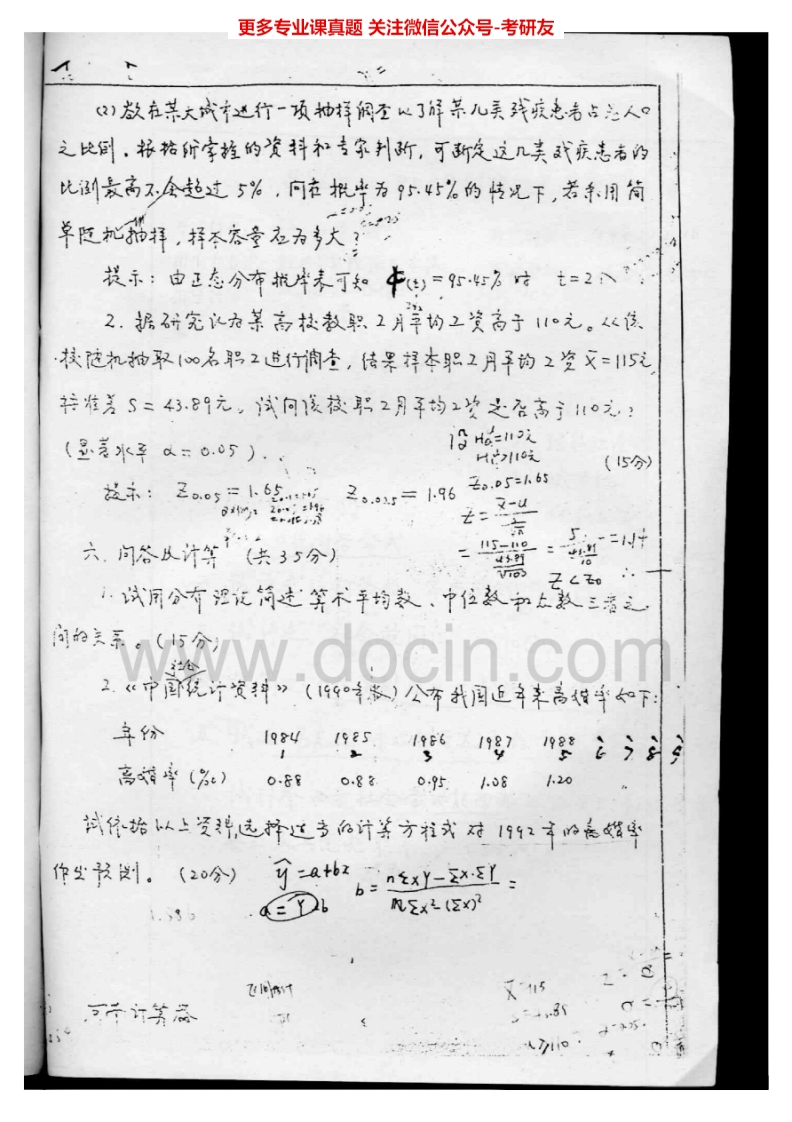 更多专业课真题 关注微信公众号-考研友
(2) 欲在某大城市进行一项抽样调查以了解某几类残疾患者占总人口
之比例。根据所掌握的资料和专家判断,可断定这几类残疾患者的
比例最高不会超过 5%,问在概率为95.45%的情况下,若采用简
单随机抽样,样本容量应为多大?
提示:由正态分布概率表可知 φ(t)=95.45% 时 t=2
2. 据研究认为某高校教职工月平均工资高于110元。从该
校随机抽取100名职工进行调查,结果样本职工月平均工资 x̄=115元
标准差 S=43.89元,试问该校职工月平均工资是否高于110元?
(显著水平 α=0.05).
(15分)
设 H₀:=110元
H₁>110元
提示: Z0.05=1.65 Z0.025=1.96
Z0.05=1.65
Z=
= 115-110 / 43.89/√100 = =1.14
Z<Z0 ∴
六、问答及计算 (共35分)
1. 试用分布理论简述算术平均数、中位数和众数三者之
间的关系。(15分)
www.docin.com
社会
2.《中国统计资料》(1990年版)公布我国近年来离婚率如下:
年份 1984 1985 1986 1987 1988
1 2 3 4 5 6 7 8 9
离婚率(‰) 0.88 0.88 0.95 1.08 1.20
试依据以上资料,选择适当的计算方程式对1992年的离婚率
作出预测。(20分)
ŷ=a+bx b= nΣXY-ΣX·ΣY / nΣX²-(ΣX)² =
可带计算器
x̄=115